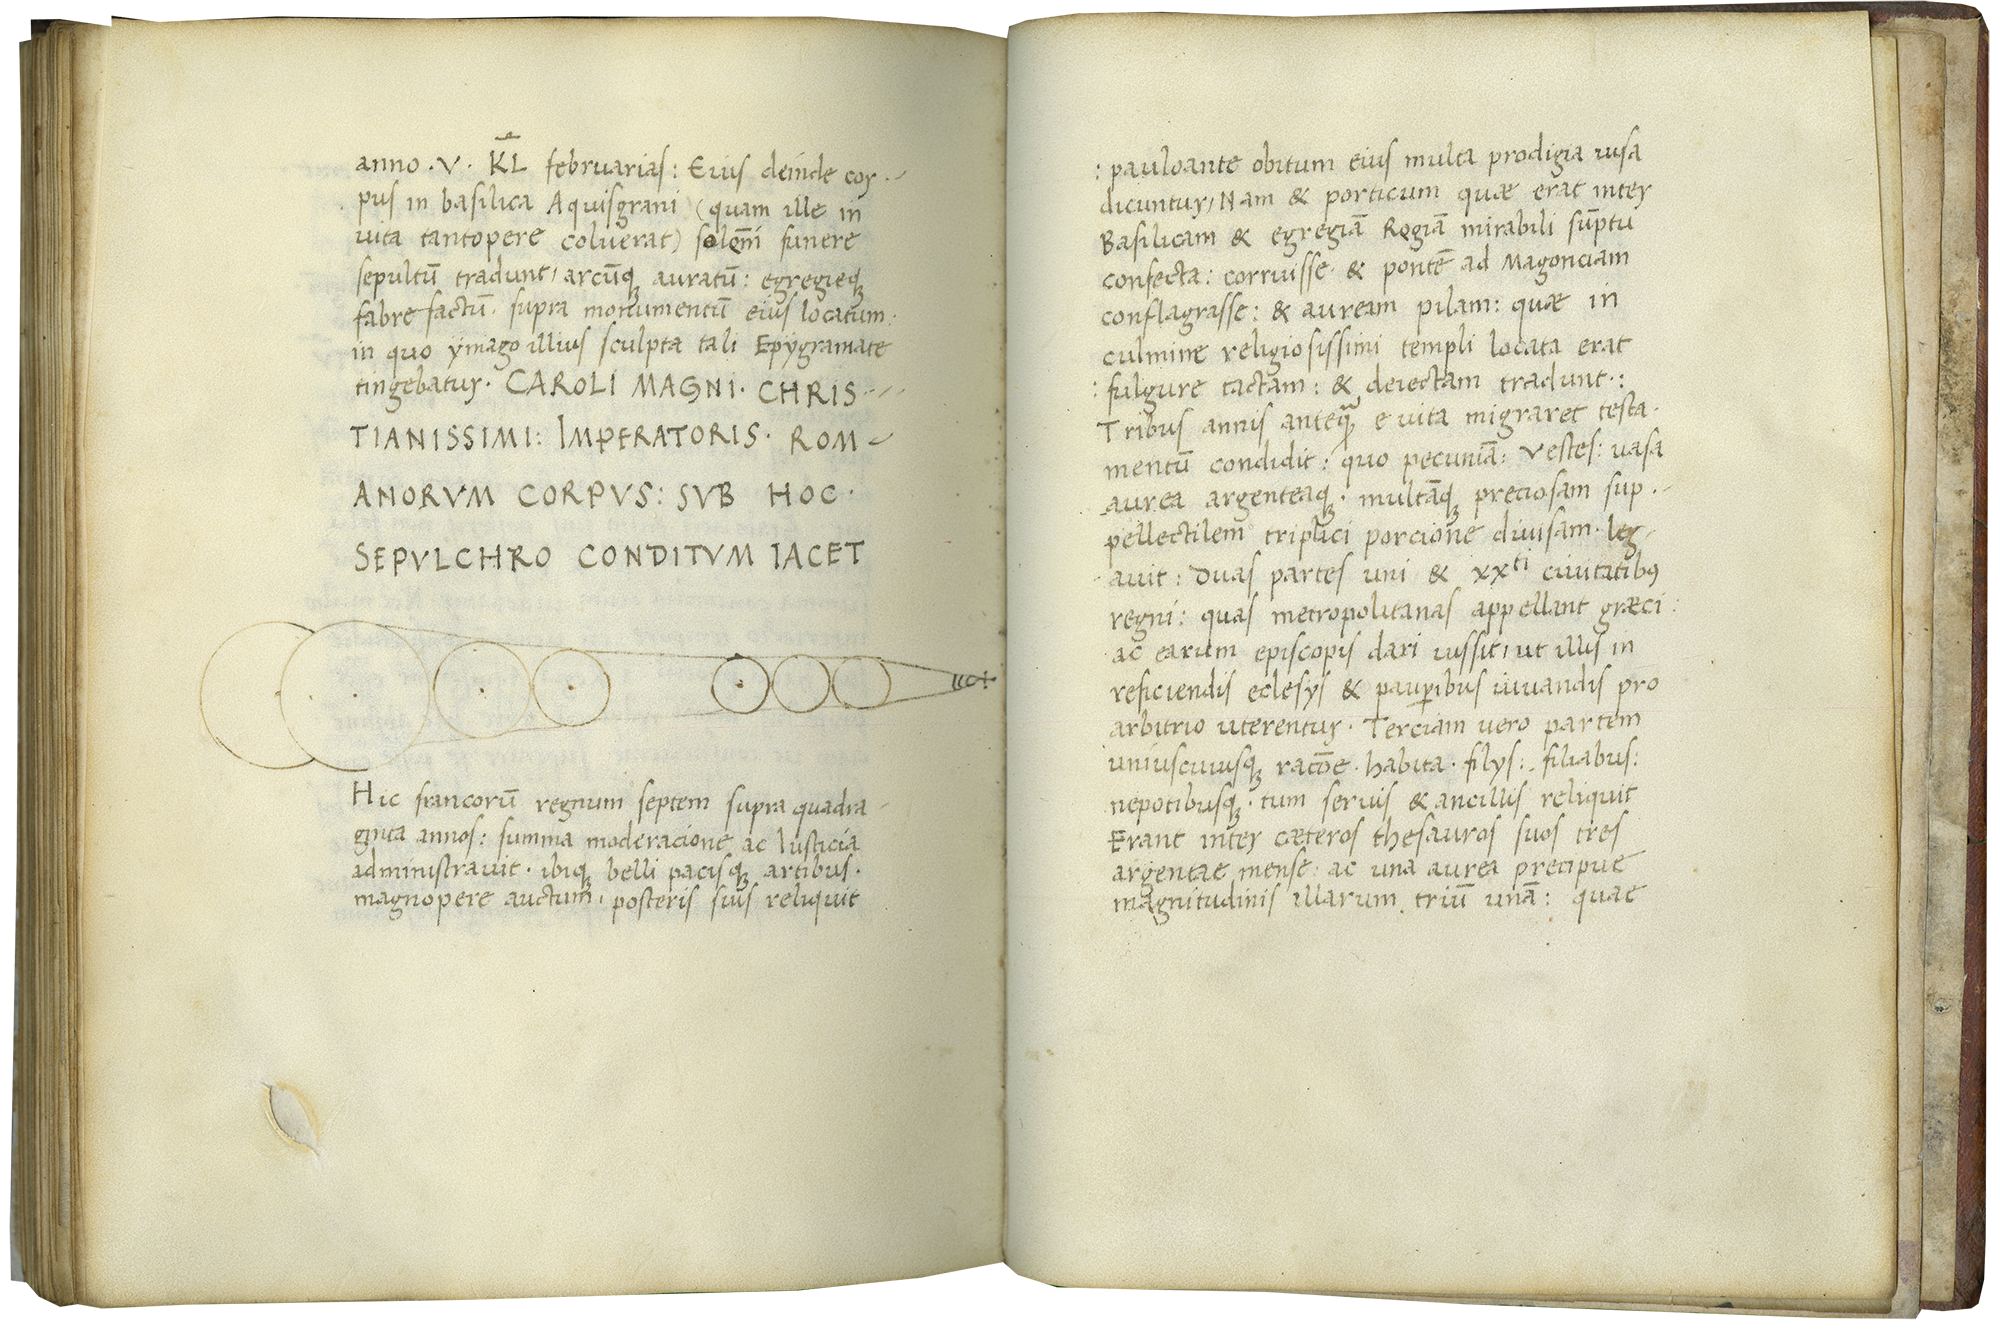 anno · V · KL februarias: Eius deinde cor-
pus in basilica Aquisgrani (quam ille in
vita tantopere coluerat) solēni funere
sepultū tradunt, arcūq; auratū: egregieq;
fabre factū, supra monumentū eius locatum:
in quo ymago illius sculpta tali Epygramate
tingebatur. CAROLI MAGNI · CHRIS-
TIANISSIMI: IMPERATORIS · ROM-
ANORVM CORPVS: SVB HOC ·
SEPVLCHRO CONDITVM IACET
Hic francorū regnum septem supra quadra-
ginta annos: summa moderacione ac Iusticia
administravit · ibiq; belli pacisq; artibus ·
magnopere auctum, posteris suis reliquit
: pauloante obitum eius multa prodigia uisa
dicuntur, Nam & porticum quae erat inter
Basilicam & egregiā Regiā mirabili sūptu
confecta: corruisse · & pontē ad Magonciam
conflagrasse: & auream pilam: quae in
culmine religiosissimi templi locata erat
: fulgure tactam: & deiectam tradunt ·:
Tribus annis anteq̃ e vita migraret testa-
mentū condidit: quo pecuniā: vestes: uasa
aurea argenteaq; · multāq; preciosam sup-
pellectilem triplici porcione diuisam · leg-
auit: Duas partes uni & xxti ciuitatibus
regni: quas metropolitanas appellant græci:
ac earum episcopis dari iussit, ut illis in
reficiendis eclesys & paup̱ibus iuuandis pro
arbitrio uterentur · Terciam uero partem
uniuscuiusq; racōe · habita · filys: filiabus:
nepotibusq; · tum seruis & ancillis reliquit
Erant inter cæteros thesauros suos tres
argentae mense: ac una aurea precipue
magnitudinis illarum triū unā: quae